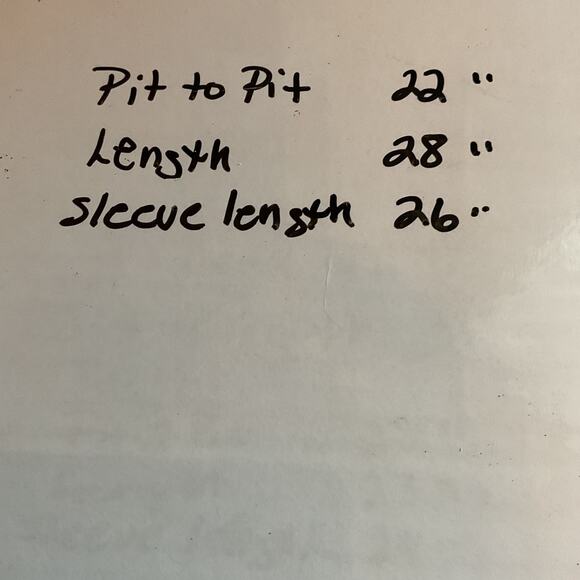 Pit to Pit 22 "
Length 28 "
Sleeve length 26 "